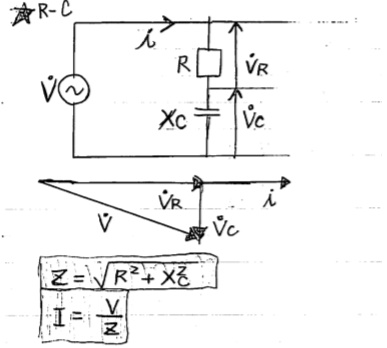 ★R-C
i
R
V̇R
V̇
XC
V̇C
V̇R
i
V̇
V̇C
Z = √R² + XC²
I = V/Z